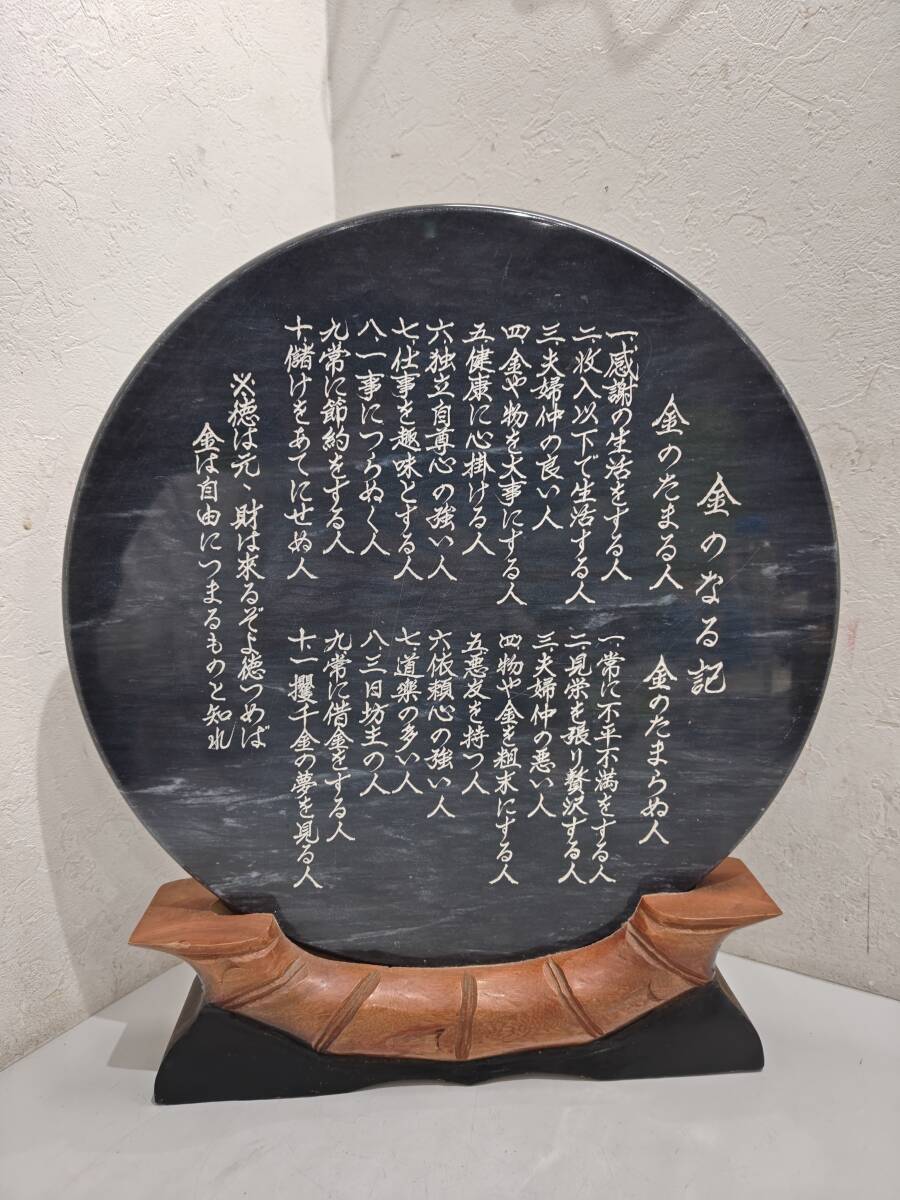 金のなる記
金のたまる人
一、感謝の生活をする人
二、収入以下で生活する人
三、夫婦仲の良い人
四、金や物を大事にする人
五、健康に心掛ける人
六、独立自尊心の強い人
七、仕事を趣味とする人
八、一事につらぬく人
九、常に節約をする人
十、儲けをあてにせぬ人
金のたまらぬ人
一、常に不平不満をする人
二、見栄を張り贅沢する人
三、夫婦仲の悪い人
四、物や金を粗末にする人
五、悪友を持つ人
六、依頼心の強い人
七、道楽の多い人
八、三日坊主の人
九、常に借金をする人
十、一攫千金の夢を見る人
※徳は元、財は来るぞよ徳つめば
金は自由につまるものと知れ